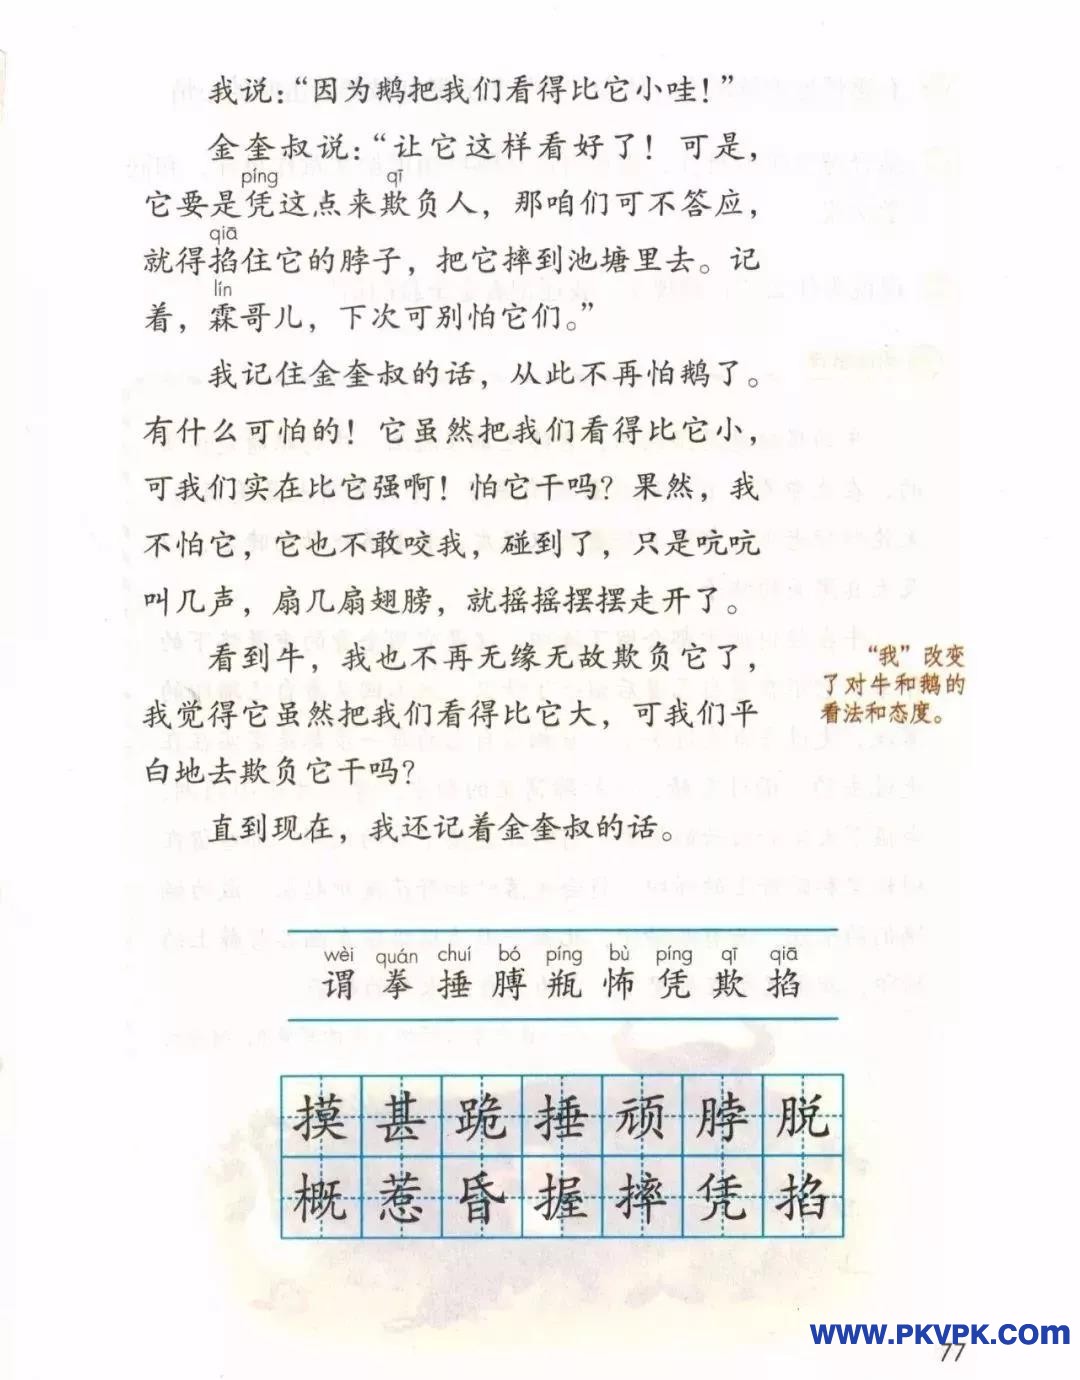 我说：“因为鹅把我们看得比它小哇！”
金奎叔说：“让它这样看好了！可是，
píng qī
它要是凭这点来欺负人，那咱们可不答应，
qiā
就得掐住它的脖子，把它摔到池塘里去。记
lín
着，霖哥儿，下次可别怕它们。”
我记住金奎叔的话，从此不再怕鹅了。
有什么可怕的！它虽然把我们看得比它小，
可我们实在比它强啊！怕它干吗？果然，我
不怕它，它也不敢咬我，碰到了，只是吭吭
叫几声，扇几扇翅膀，就摇摇摆摆走开了。
看到牛，我也不再无缘无故欺负它了，
我觉得它虽然把我们看得比它大，可我们平
白地去欺负它干吗？
直到现在，我还记着金奎叔的话。
“我”改变
了对牛和鹅的
看法和态度。
wèi quán chuí bó píng bù píng qī qiā
谓 拳 捶 膊 瓶 怖 凭 欺 掐
摸 甚 跪 捶 顽 脖 脱
概 惹 昏 握 摔 凭 掐
www.PKVPK.com
77